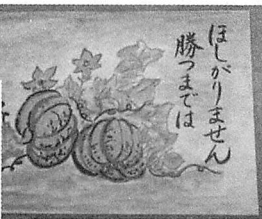 ほしがりません
勝つまでは